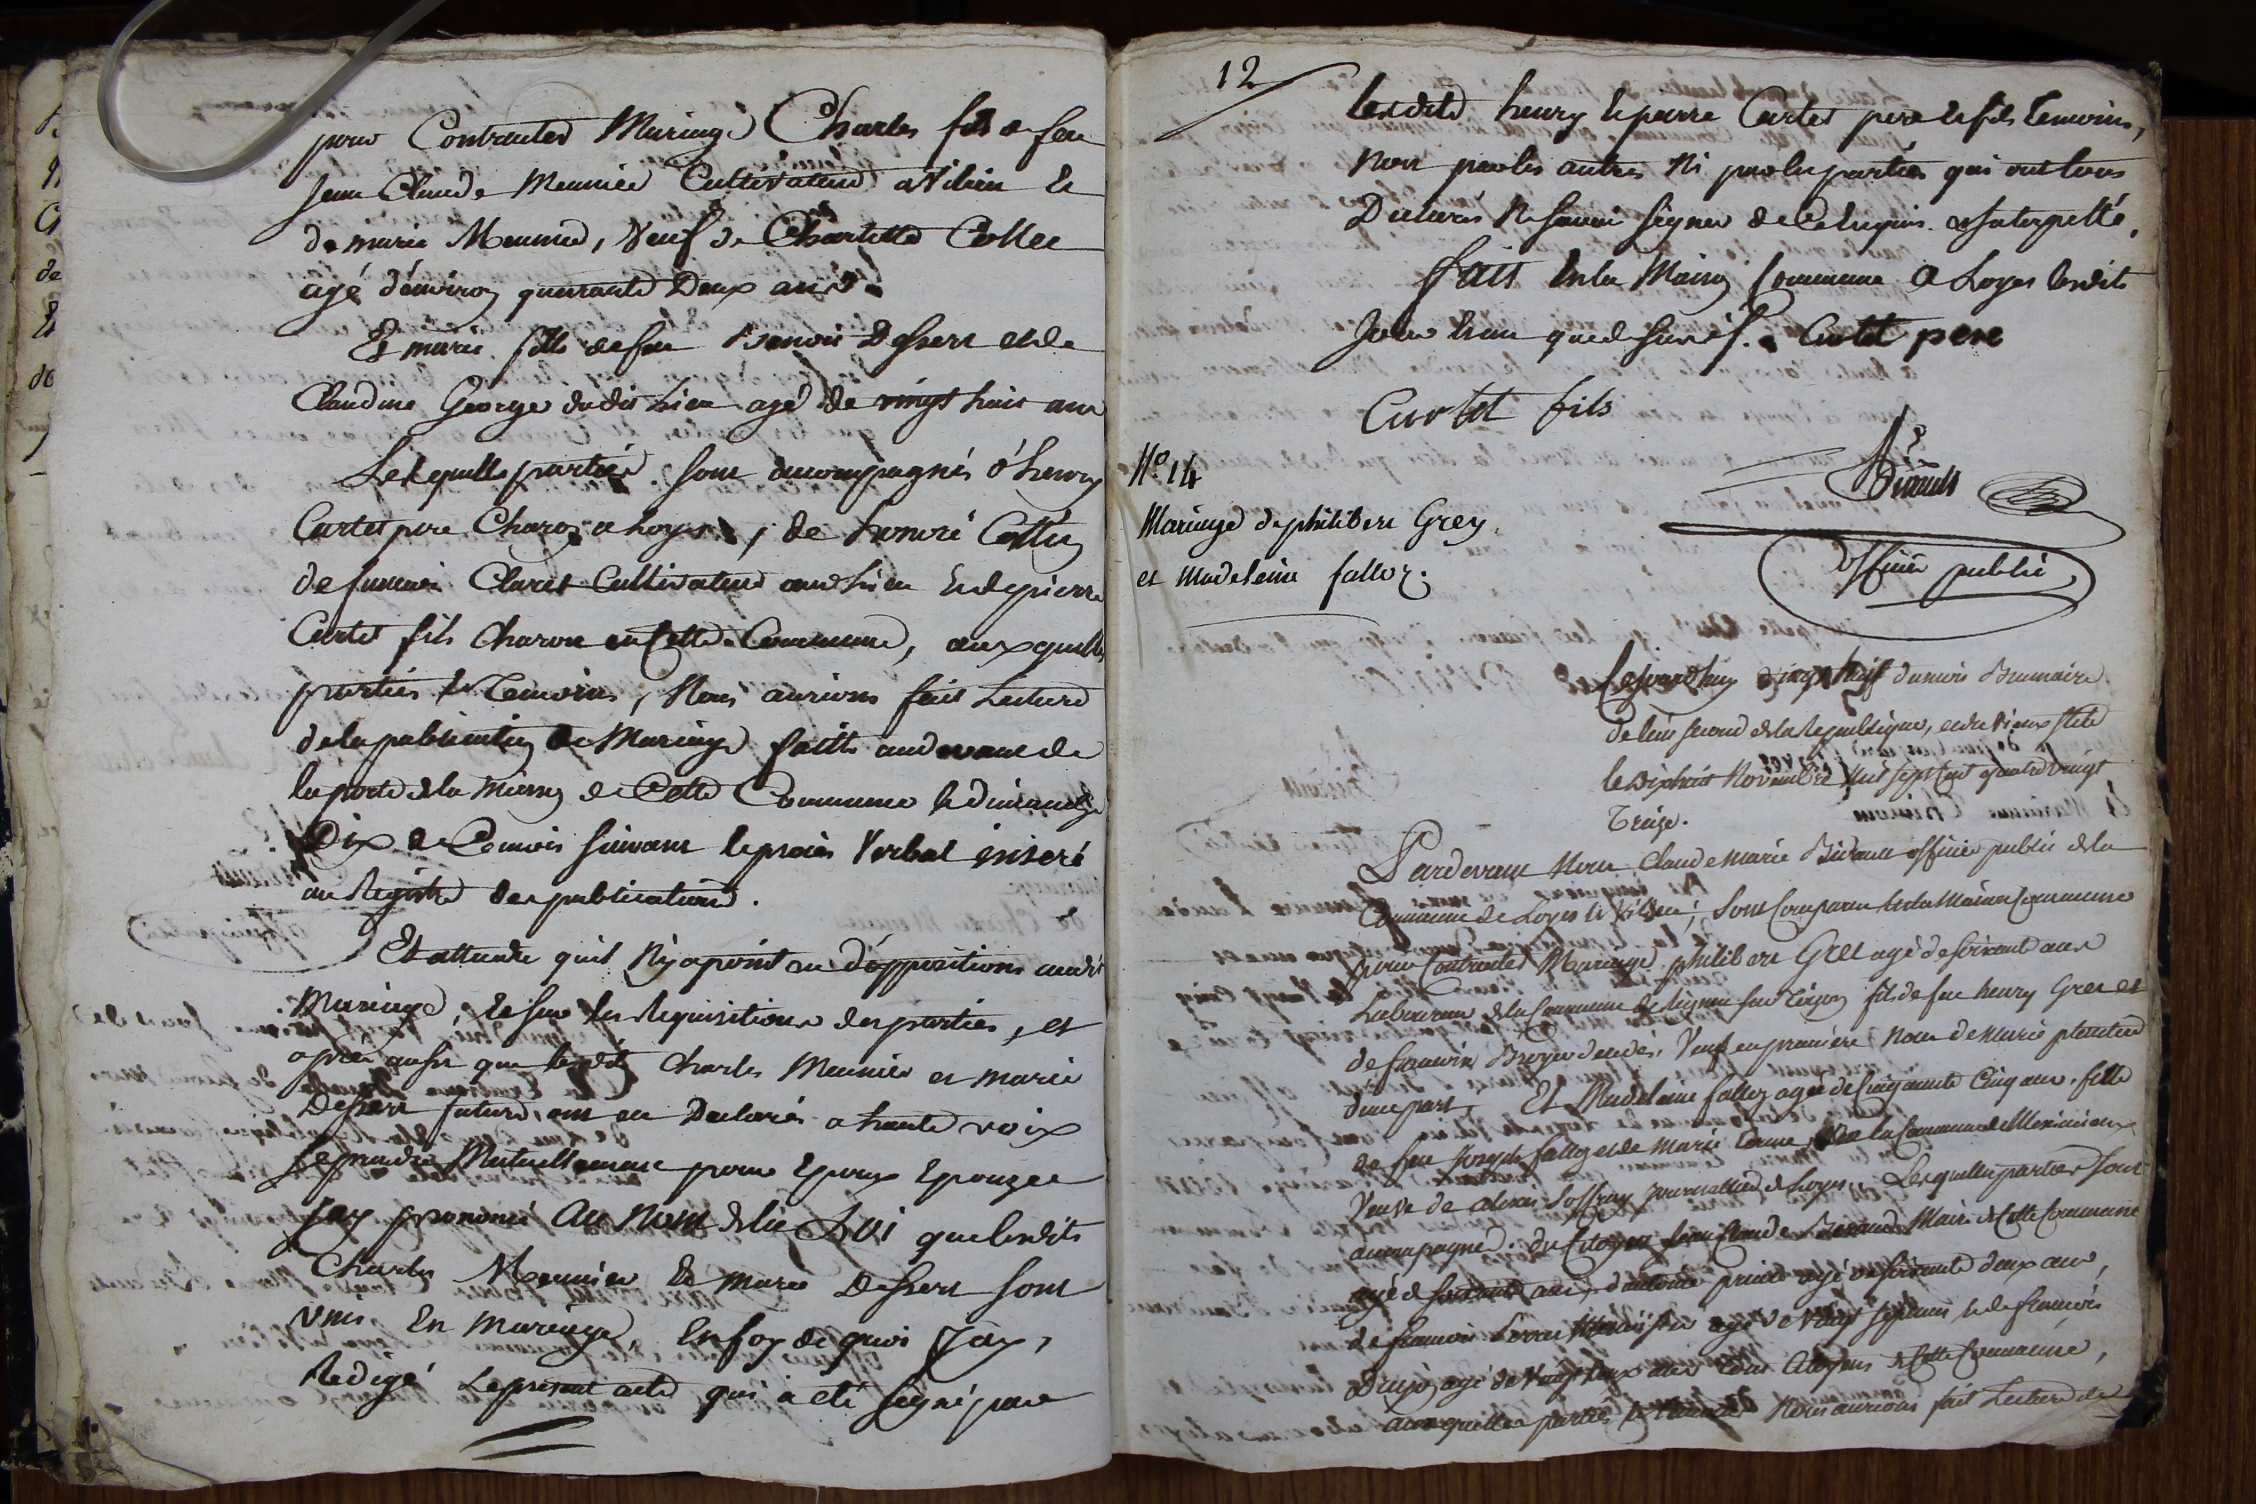 pour Contracter Mariage Charles fils de feu
Jean Claude Meunier Cultivateur a Vilieu Et
de marie Meunier, Veuf de Charlotte Collet
agé d'environ quarante Deux ans.
Et marie fille de feu Benoit Dessert et de
Claudine George dudit Lieu agé de vingt huit ans
Lesquelles parties sont accompagnés d'henry
Curtet pere Charon a Loyes, de honoré Collin
de francois Claret Cultivateur audit Lieu Et de pierre
Curtet fils Charon en Cette Commune, auxquelles
parties & Temoins, Nous aurions fait Lecture
de la publication de Mariage faitte au devant de
la porte de la Maison de Cette Commune le dimanche
Dix de Ce mois suivant le procès Verbal inseré
au Registre des publications.
Et attendu quil N'y a point eu d'oppositions audit
Mariage, Et sur les Requisitions des parties, et
après aussi que lesdits Charles Meunier et marie
Dessert futurs, ont eu Declarés a haute voix
se prendre Mutuellement pour Epoux Epouzee
Jay prononcé Au Nom de la Loi que lesdits
Charles Meunier Et marie Dessert sont
unis En mariage En foy de quoi Jay,
Redigé Le present acte qui a été signé par
12
lesdits henry Et pierre Curtet pere et fils Temoins,
Non par les autres Ni par les parties qui ont tous
Declarés Ne savoir signer de Ce Enquis & Interpellé,
fait En la Maison Commune a Loyes lesdits
Jour Et an que dessus. Curtet pere
Curtet fils
Birault
officier public
N° 14
Mariage de philibert Grey
et Madeleine falloz.
Cejourdhuy vingt huit du mois Brumaire
de l'an second de la Republique, et du vieux stile
le Dixhuit Novembre Mil sept Cent quatre vingt
Treize.
Pardevant Nous Claude Marie Birault officier public de la
Commune de Loyes Et Vilieu, sont Comparu En la Maison Commune
pour Contracter Mariage philibert Gret agé de soixante ans
Laboureur de la Commune de fils de feu henry Gret et
de francoise Broyer decedés, Veuf en premiere Noces de Marie
d'une part, Et Madeleine falloz agée de Cinquante Cinq ans, fille
de feu Joseph falloz et de Marie de la Commune de Meximieux
Veuve de Joffray Journallier de Loyes, Lesquelles parties sont
accompagnés du Citoyen Jean Claude Maire de Cette Commune
agé de soixante ans, d'antoine agé de soixante deux ans,
de francois agé de vingt sept ans & de francois
agé de vingt deux ans tous Citoyens de Cette Commune,
auxquelles parties & Temoins Nous aurions fait Lecture de